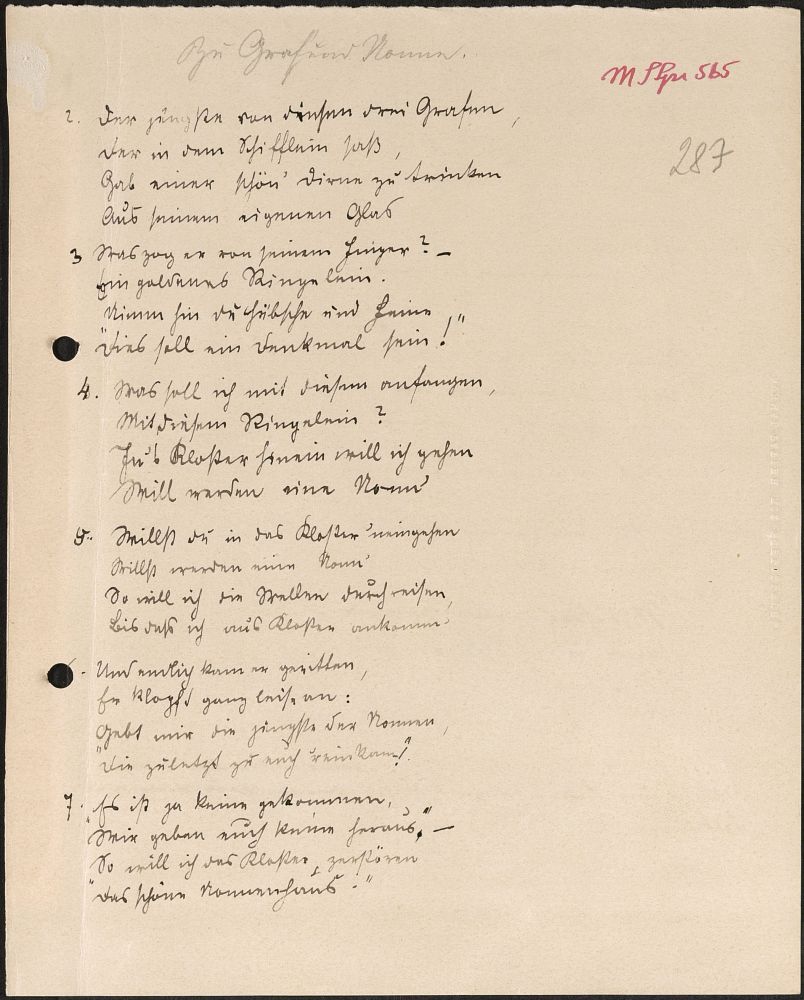 Zu Graf und Nonne.
287
2. Der jüngste von diesen drei Grafen,
Der in dem Schifflein saß,
Gab einer schön' Dirne zu trinken
Aus seinem eigenen Glas
3 Was zog er von seinem Finger? –
Ein goldenes Ringelein.
Nimm hin du hübsche und Feine
"Dies soll ein Denkmal sein!"
4. Was soll ich mit diesem anfangen,
Mit diesem Ringelein?
In's Kloster hinein will ich gehen
Will werden eine Nonn'
5. Willst du in das Kloster 'neingehen
Willst werden eine Nonn'
So will ich die Wellen durchreisen,
Bis daß ich ans Kloster ankomm'
- Und endlich kam er geritten,
Er klopft ganz leise an:
Gebt mir die jüngste der Nonnen,
"Die zuletzt zu euch 'reinkam!"
7. Es ist ja keine gekommen,
"Wir geben euch keine heraus," –
So will ich das Kloster zerstören
"Das schöne Nonnenhaus."